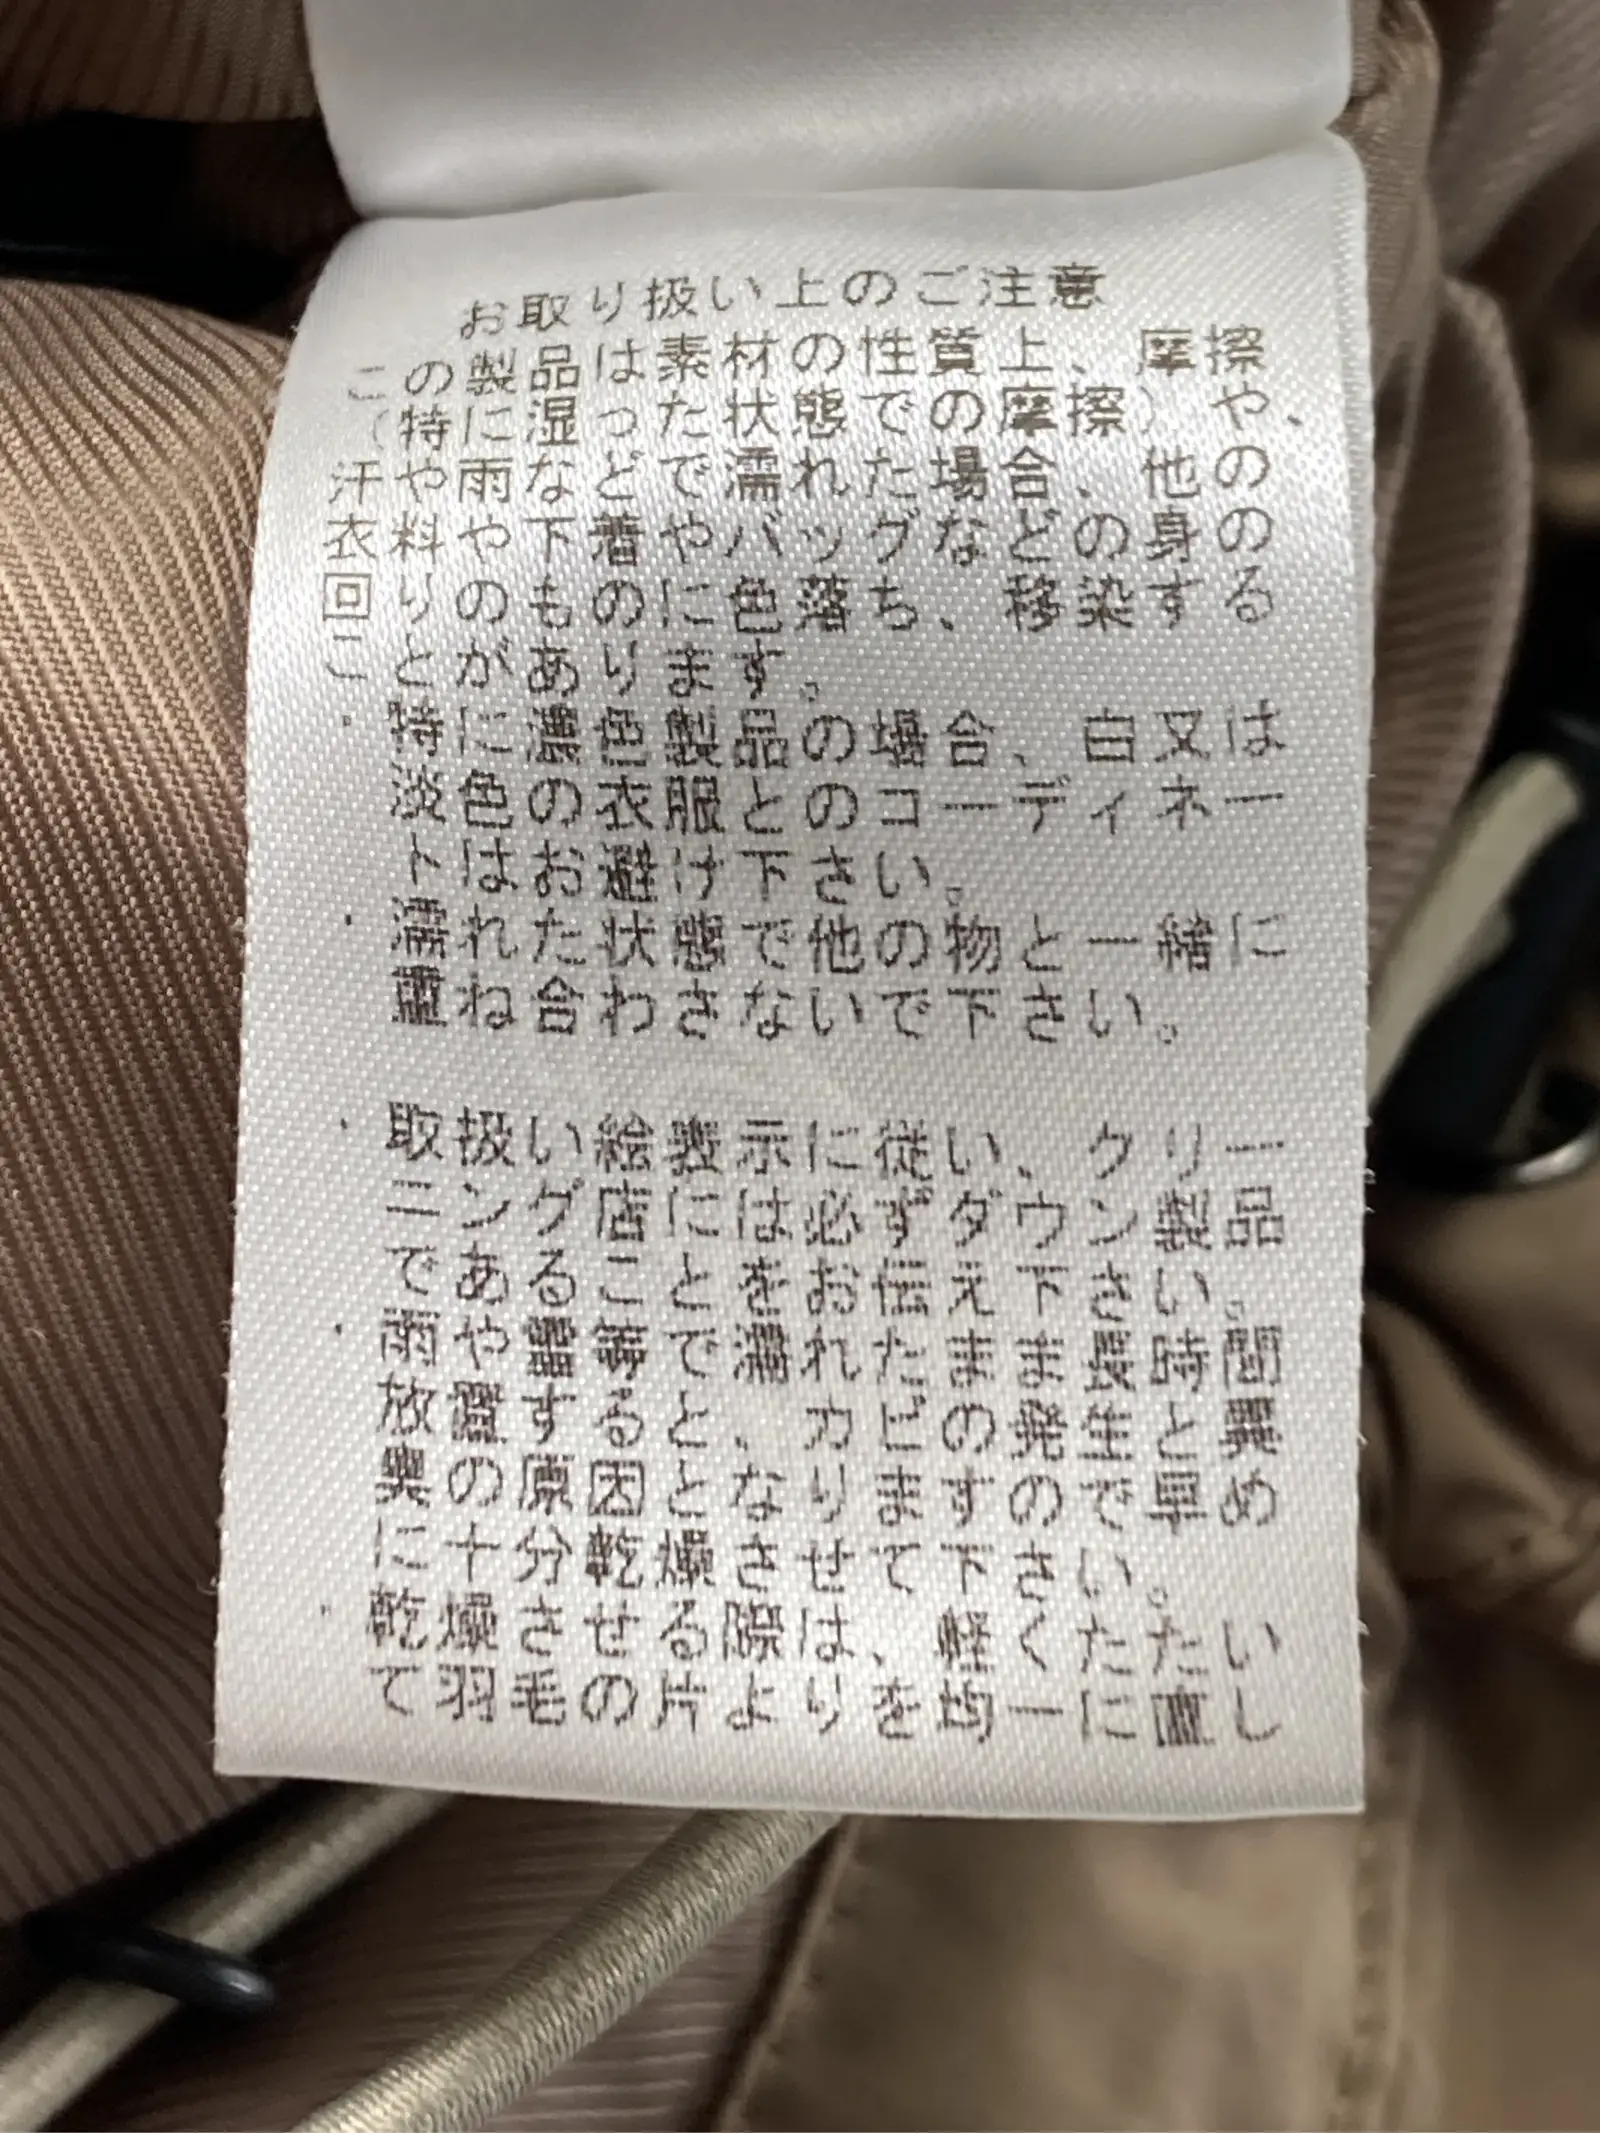 お取り扱い上のご注意
この製品は素材の性質上、摩擦
(特に湿った状態での摩擦)や、
汗や雨などで濡れた場合、他の
衣料や下着やバッグなどの身の
回りのものに色落ち、移染する
ことがあります。
・特に濃色製品の場合、白又は
淡色の衣服とのコーディネー
トはお避け下さい。
・濡れた状態で他の物と一緒に
重ね合わさないで下さい。
・取扱い絵表示に従い、クリー
ニング店には必ずダウン製品
であることをお伝え下さい。
・雨や雪等で濡れたまま長時間
放置すると、カビの発生と異
臭の原因となりますので早め
に十分乾燥させて下さい。
・乾燥させる際は、軽くたたい
て羽毛の片よりを均一に直し